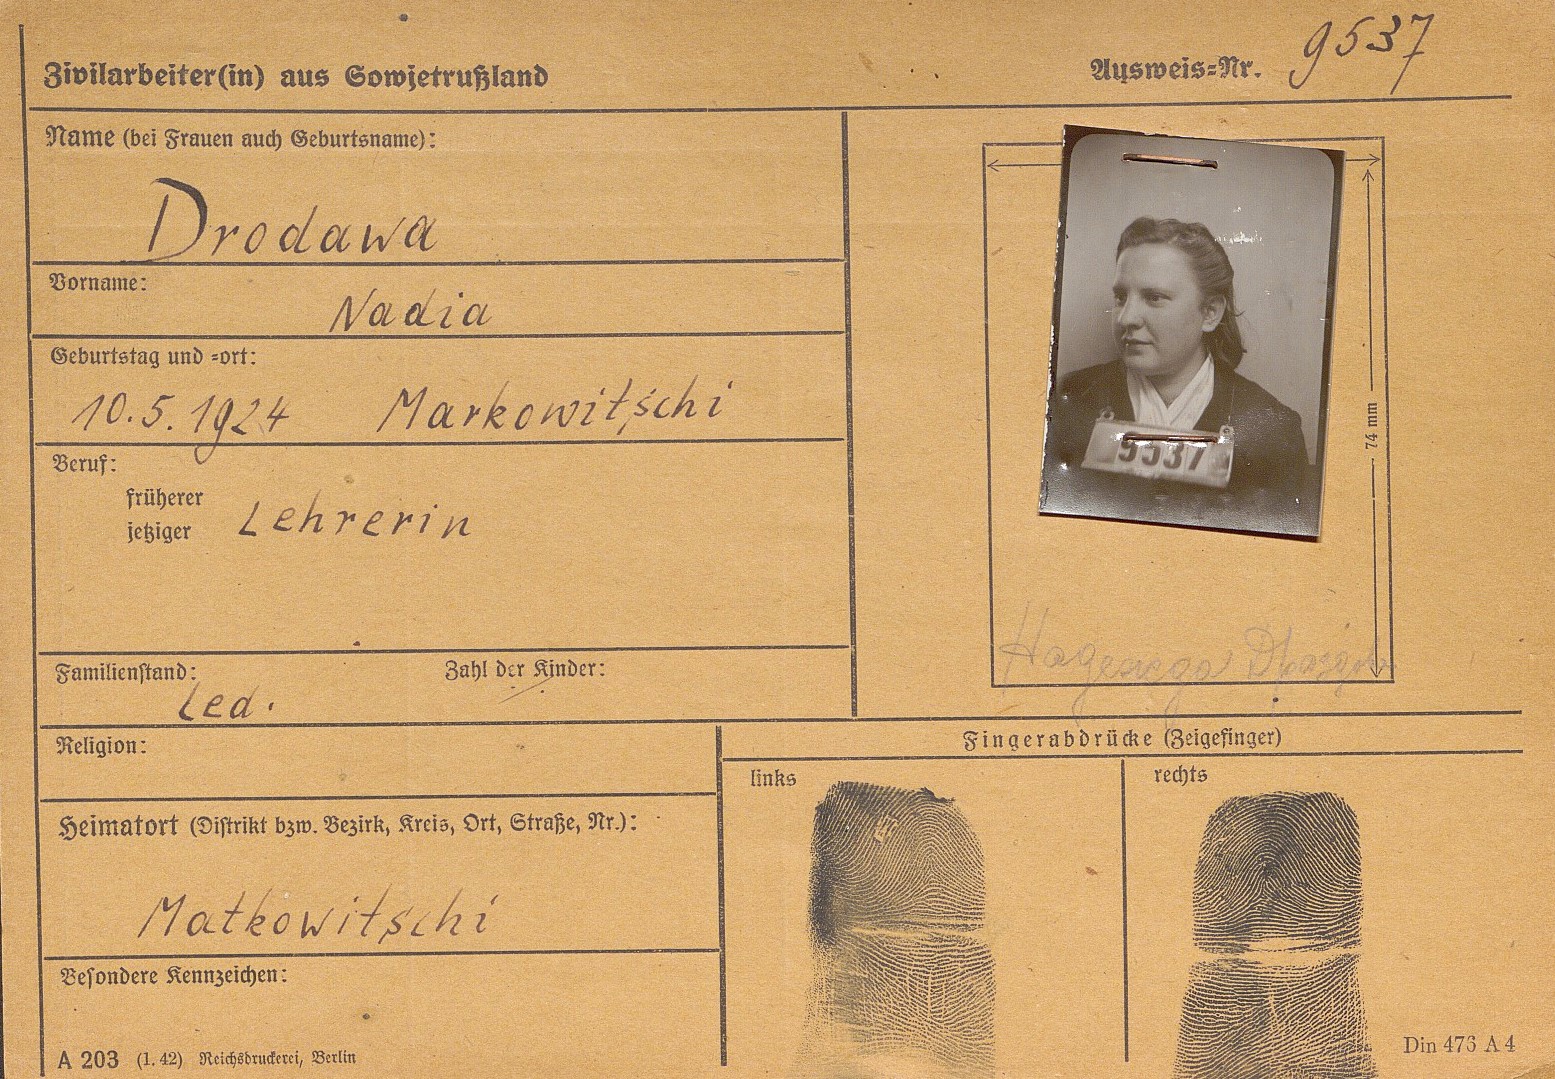 Zivilarbeiter(in) aus Sowjetrußland
Ausweis=Nr. 9537
Name (bei Frauen auch Geburtsname):
Drodawa
Vorname:
Nadia
Geburtstag und =ort:
10.5.1924 Markowitschi
Beruf:
früherer
jetziger
Lehrerin
74 mm
9537
Familienstand:
Led.
Zahl der Kinder:
Religion:
Fingerabdrücke (Zeigefinger)
links
rechts
Heimatort (Distrikt bzw. Bezirk, Kreis, Ort, Straße, Nr.):
Matkowitschi
Besondere Kennzeichen:
A 203 (1. 42) Reichsdruckerei, Berlin
Din 476 A 4